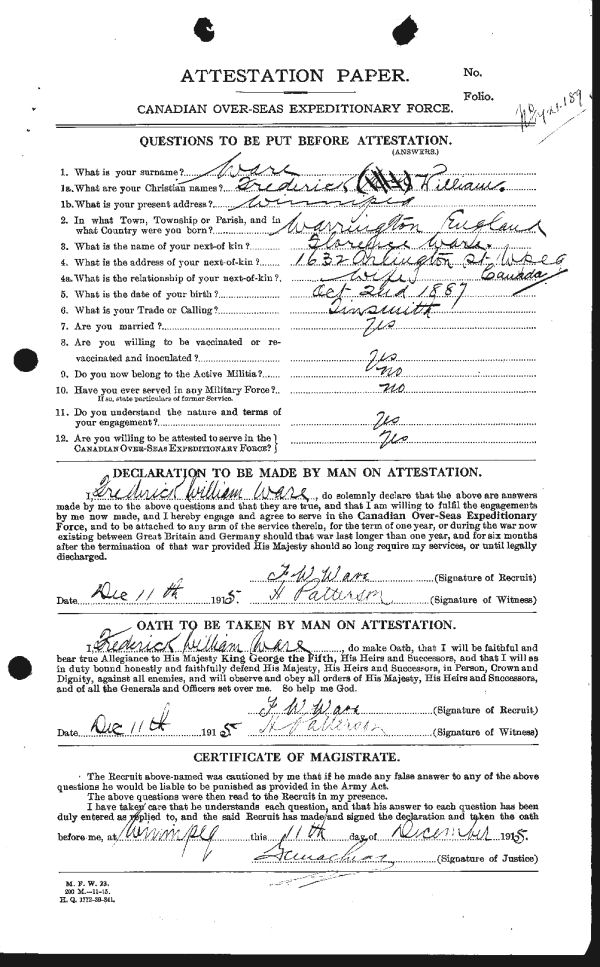 ATTESTATION PAPER.
No.
Folio.
CANADIAN OVER-SEAS EXPEDITIONARY FORCE.
QUESTIONS TO BE PUT BEFORE ATTESTATION.
(ANSWERS.)
1. What is your surname? Ware
1a. What are your Christian names? Frederick William.
1b. What is your present address? Winnipeg
2. In what Town, Township or Parish, and in
what Country were you born? Warrington England
3. What is the name of your next-of-kin? Florence Ware.
4. What is the address of your next-of-kin? 1632 Arlington St. Wpeg
Canada
4a. What is the relationship of your next-of-kin? Wife
5. What is the date of your birth? Oct 2nd 1887
6. What is your Trade or Calling? Tinsmith
7. Are you married? Yes
8. Are you willing to be vaccinated or re-
vaccinated and inoculated? Yes
9. Do you now belong to the Active Militia? no
10. Have you ever served in any Military Force? no
If so, state particulars of former Service.
11. Do you understand the nature and terms of
your engagement? Yes
12. Are you willing to be attested to serve in the
CANADIAN OVER-SEAS EXPEDITIONARY FORCE? Yes
DECLARATION TO BE MADE BY MAN ON ATTESTATION.
I, Frederick William Ware, do solemnly declare that the above are answers
made by me to the above questions and that they are true, and that I am willing to fulfil the engagements
by me now made, and I hereby engage and agree to serve in the Canadian Over-Seas Expeditionary
Force, and to be attached to any arm of the service therein, for the term of one year, or during the war now
existing between Great Britain and Germany should that war last longer than one year, and for six months
after the termination of that war provided His Majesty should so long require my services, or until legally
discharged.
F W Ware (Signature of Recruit)
Date Dec 11th 1915. H Patterson (Signature of Witness)
OATH TO BE TAKEN BY MAN ON ATTESTATION.
I, Frederick William Ware, do make Oath, that I will be faithful and
bear true Allegiance to His Majesty King George the Fifth, His Heirs and Successors, and that I will as
in duty bound honestly and faithfully defend His Majesty, His Heirs and Successors, in Person, Crown and
Dignity, against all enemies, and will observe and obey all orders of His Majesty, His Heirs and Successors,
and of all the Generals and Officers set over me. So help me God.
F W Ware (Signature of Recruit)
Date Dec 11th 1915 H Patterson (Signature of Witness)
CERTIFICATE OF MAGISTRATE.
The Recruit above-named was cautioned by me that if he made any false answer to any of the above
questions he would be liable to be punished as provided in the Army Act.
The above questions were then read to the Recruit in my presence.
I have taken care that he understands each question, and that his answer to each question has been
duly entered as replied to, and the said Recruit has made and signed the declaration and taken the oath
before me, at Winnipeg this 11th day of December 1915.
(Signature of Justice)
M. F. W. 23.
200 M.—11-15.
H. Q. 1772-39-841.